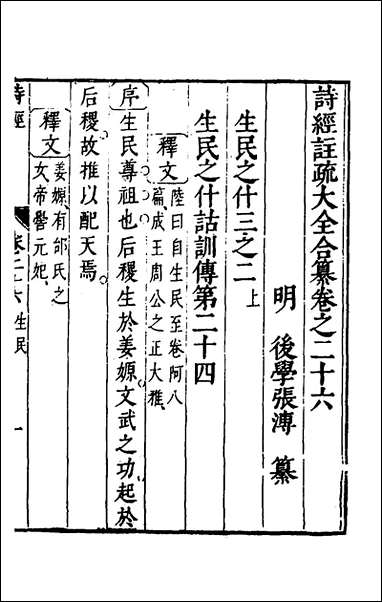 詩經註疏大全合纂卷之二十六
明　後學張溥　纂
生民之什三之二上
生民之什詁訓傳第二十四
釋文　陸曰自生民至卷阿八
篇成王周公之正大雅
序　生民尊祖也后稷生於姜嫄文武之功起於
后稷故推以配天焉
釋文　姜嫄有邰氏之
女帝嚳元妃
詩經　卷二十六　生民　一